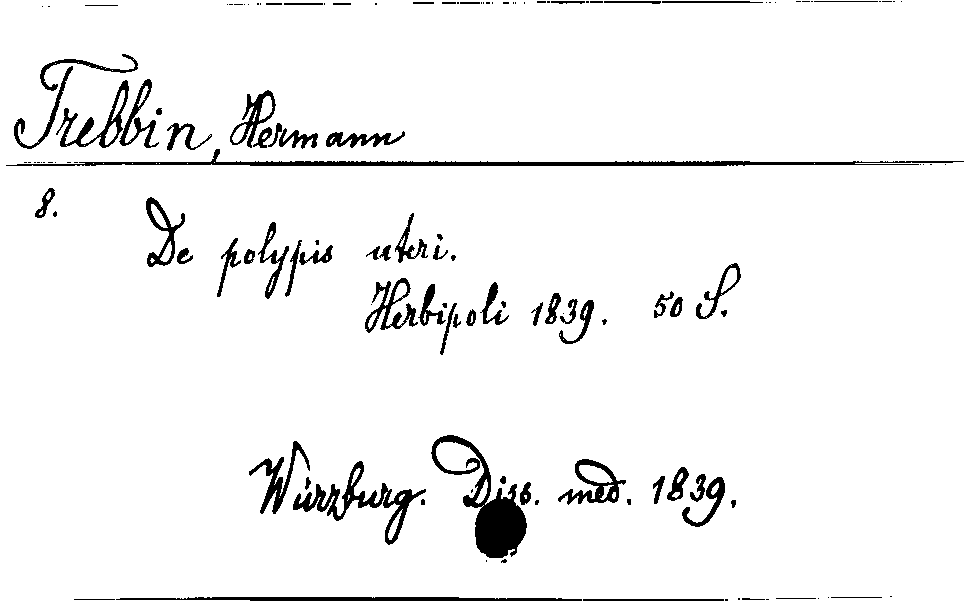 Trebbin, Hermann
8. De polypis uteri.
Herbipoli 1839. 50 S.
Würzburg. Diss. med. 1839.